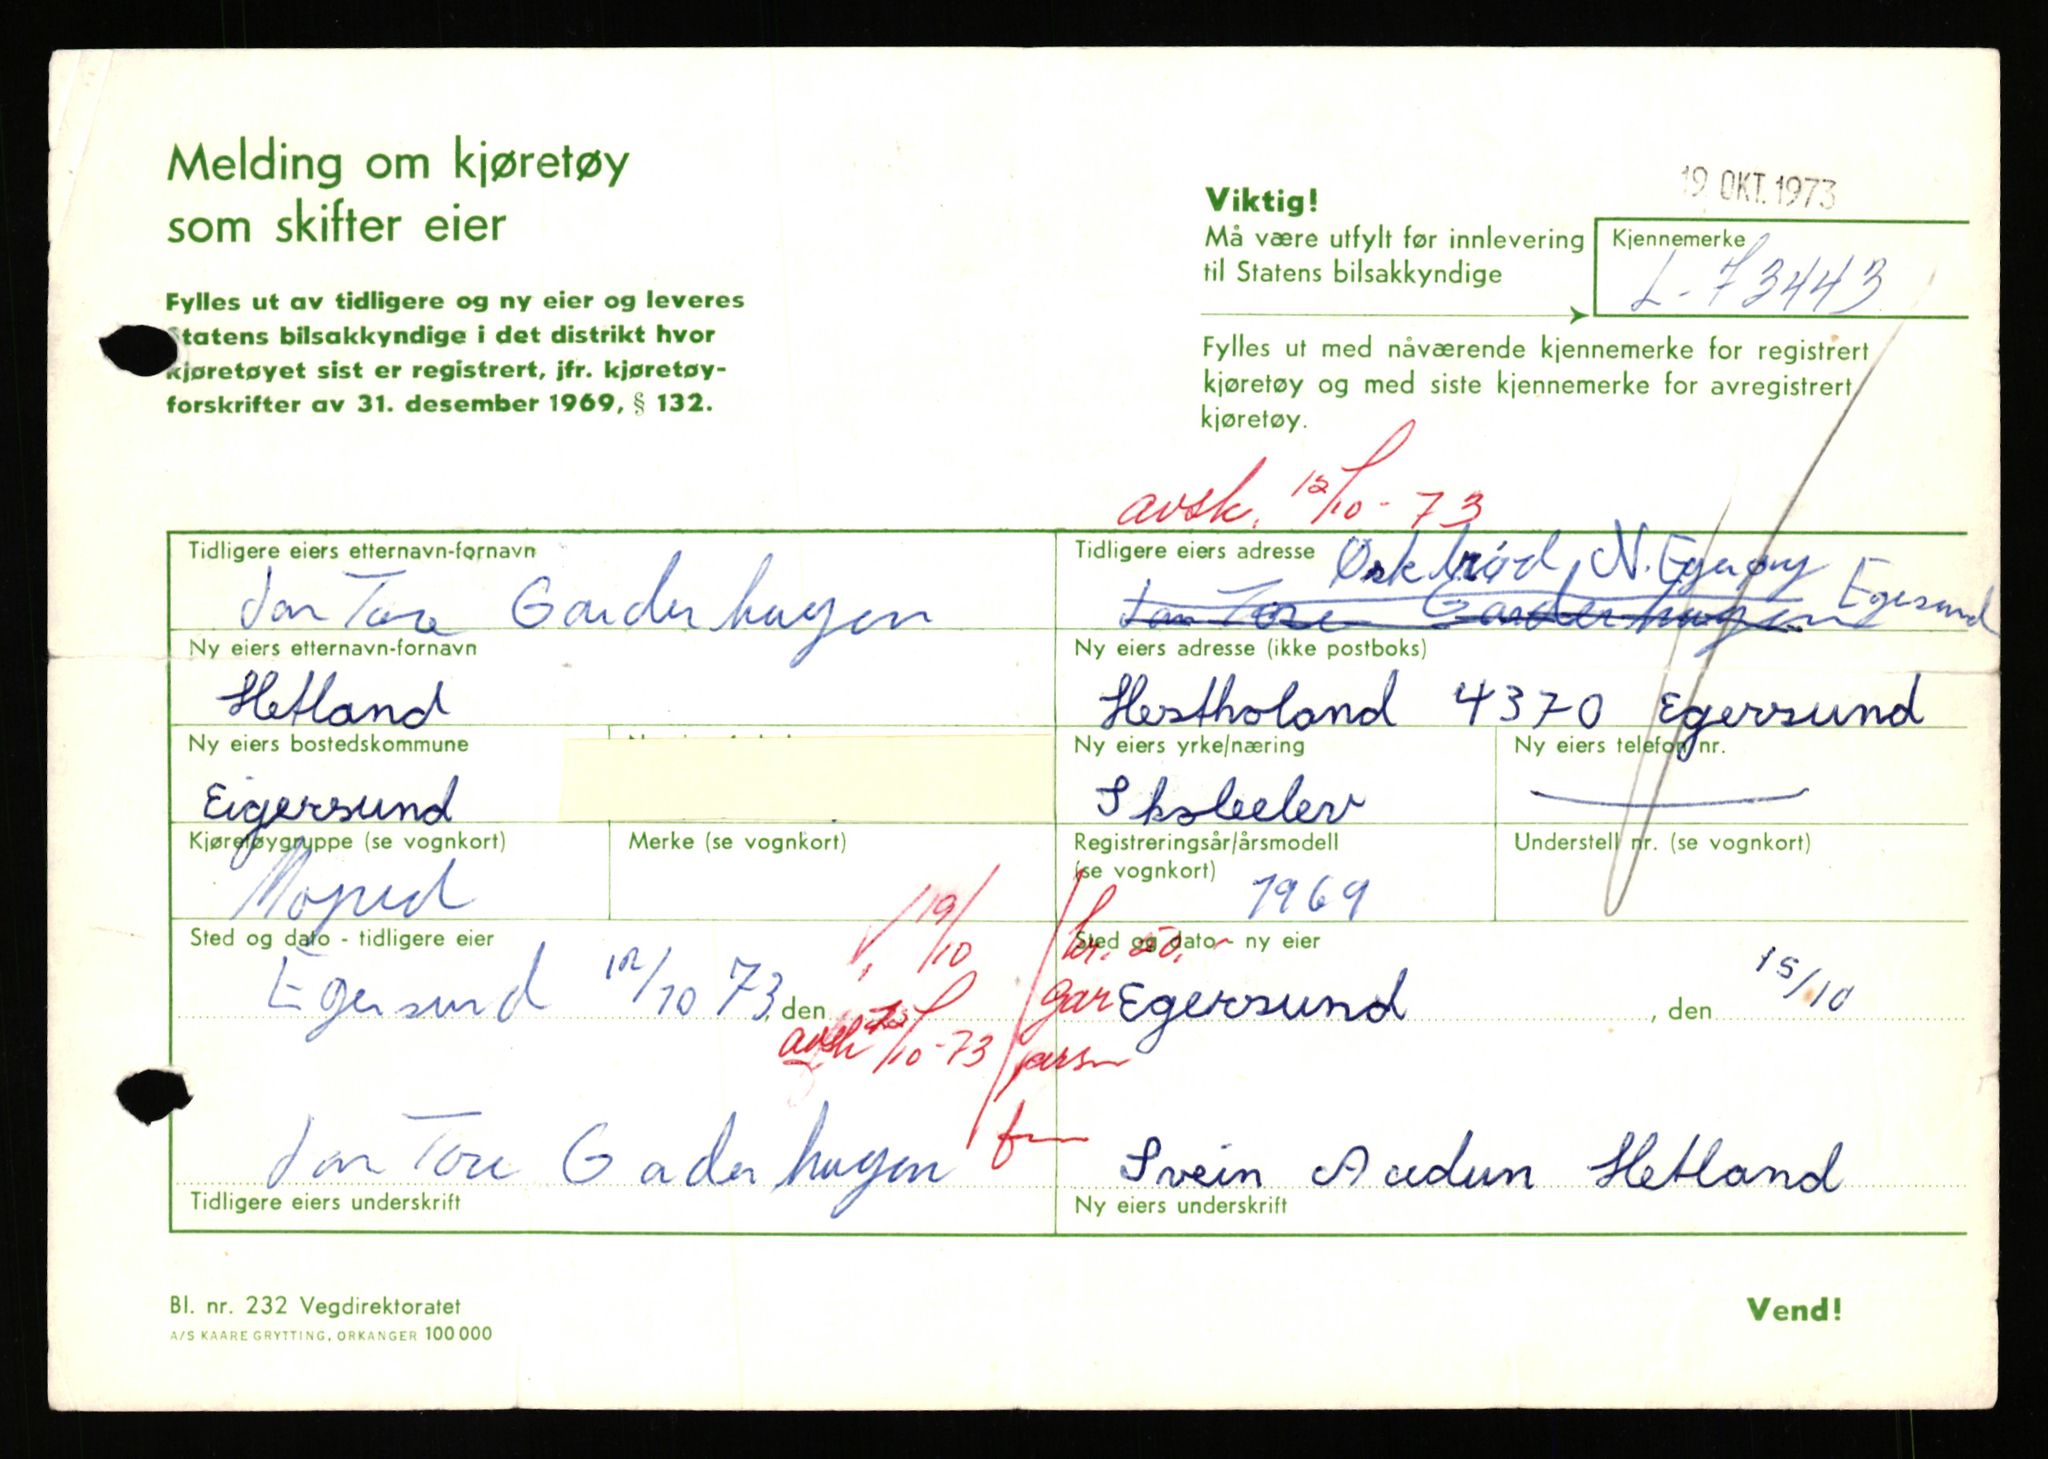 Melding om kjøretøy
som skifter eier
Fylles ut av tidligere og ny eier og leveres
Statens bilsakkyndige i det distrikt hvor
kjøretøyet sist er registrert, jfr. kjøretøy-
forskrifter av 31. desember 1969, § 132.
19 OKT. 1973
Viktig!
Må være utfylt før innlevering
til Statens bilsakkyndige
Kjennemerke
L-73443
Fylles ut med nåværende kjennemerke for registrert
kjøretøy og med siste kjennemerke for avregistrert
kjøretøy.
avsk. 12/10-73
Tidligere eiers etternavn-fornavn
Jan Tore Garderhagen
Tidligere eiers adresse
N. Egerøy
Jan Tore Garderhagen
Egersund
Ny eiers etternavn-fornavn
Hetland
Ny eiers adresse (ikke postboks)
Hestholand 4370 Egersund
Ny eiers bostedskommune
Eigersund
Ny eiers yrke/næring
Skoleelev
Ny eiers telefon nr.
Kjøretøygruppe (se vognkort)
Moped
Merke (se vognkort)
Registreringsår/årsmodell
(se vognkort)
1969
Understell nr. (se vognkort)
Sted og dato - tidligere eier
Egersund 12/10 73, den
19/10
avsk 12/10-73
kr. 50,-
Sted og dato - ny eier
Egersund, den 15/10
Jan Tore Gaderhagen
Tidligere eiers underskrift
Svein Audun Hetland
Ny eiers underskrift
Bl. nr. 232 Vegdirektoratet
A/S KAARE GRYTTING, ORKANGER 100 000
Vend!